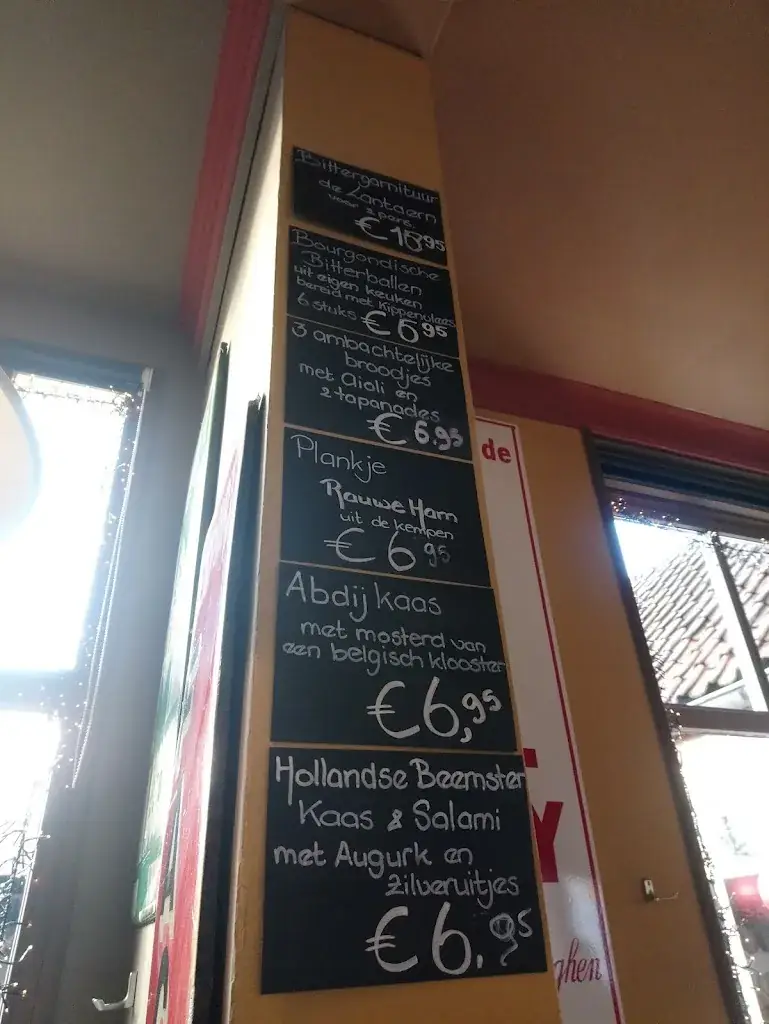 Bittergarnituur
de Lantaern
voor 2 pers.
€ 18,95
Bourgondische
Bitterballen
uit eigen keuken
bereid met Kippenvlees
6 stuks € 6,95
3 ambachtelijke
broodjes
met aioli en
2 tapanades
€ 6.95
Plankje
Rauwe Ham
uit de kempen
€ 6 95
Abdij kaas
met mosterd van
een belgisch klooster
€6,95
Hollandse Beemster
Kaas & Salami
met Augurk en
Zilveruitjes
€6.95
de
Y
ghen